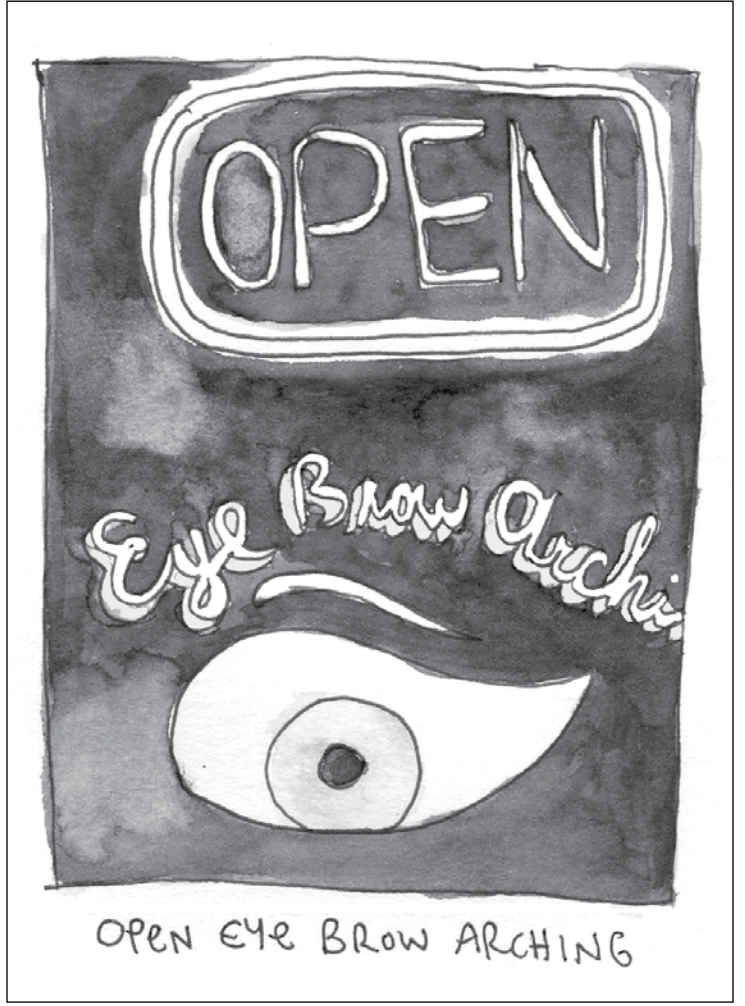 OPEN
Eye Brow Archi
OPEN EYE BROW ARCHING